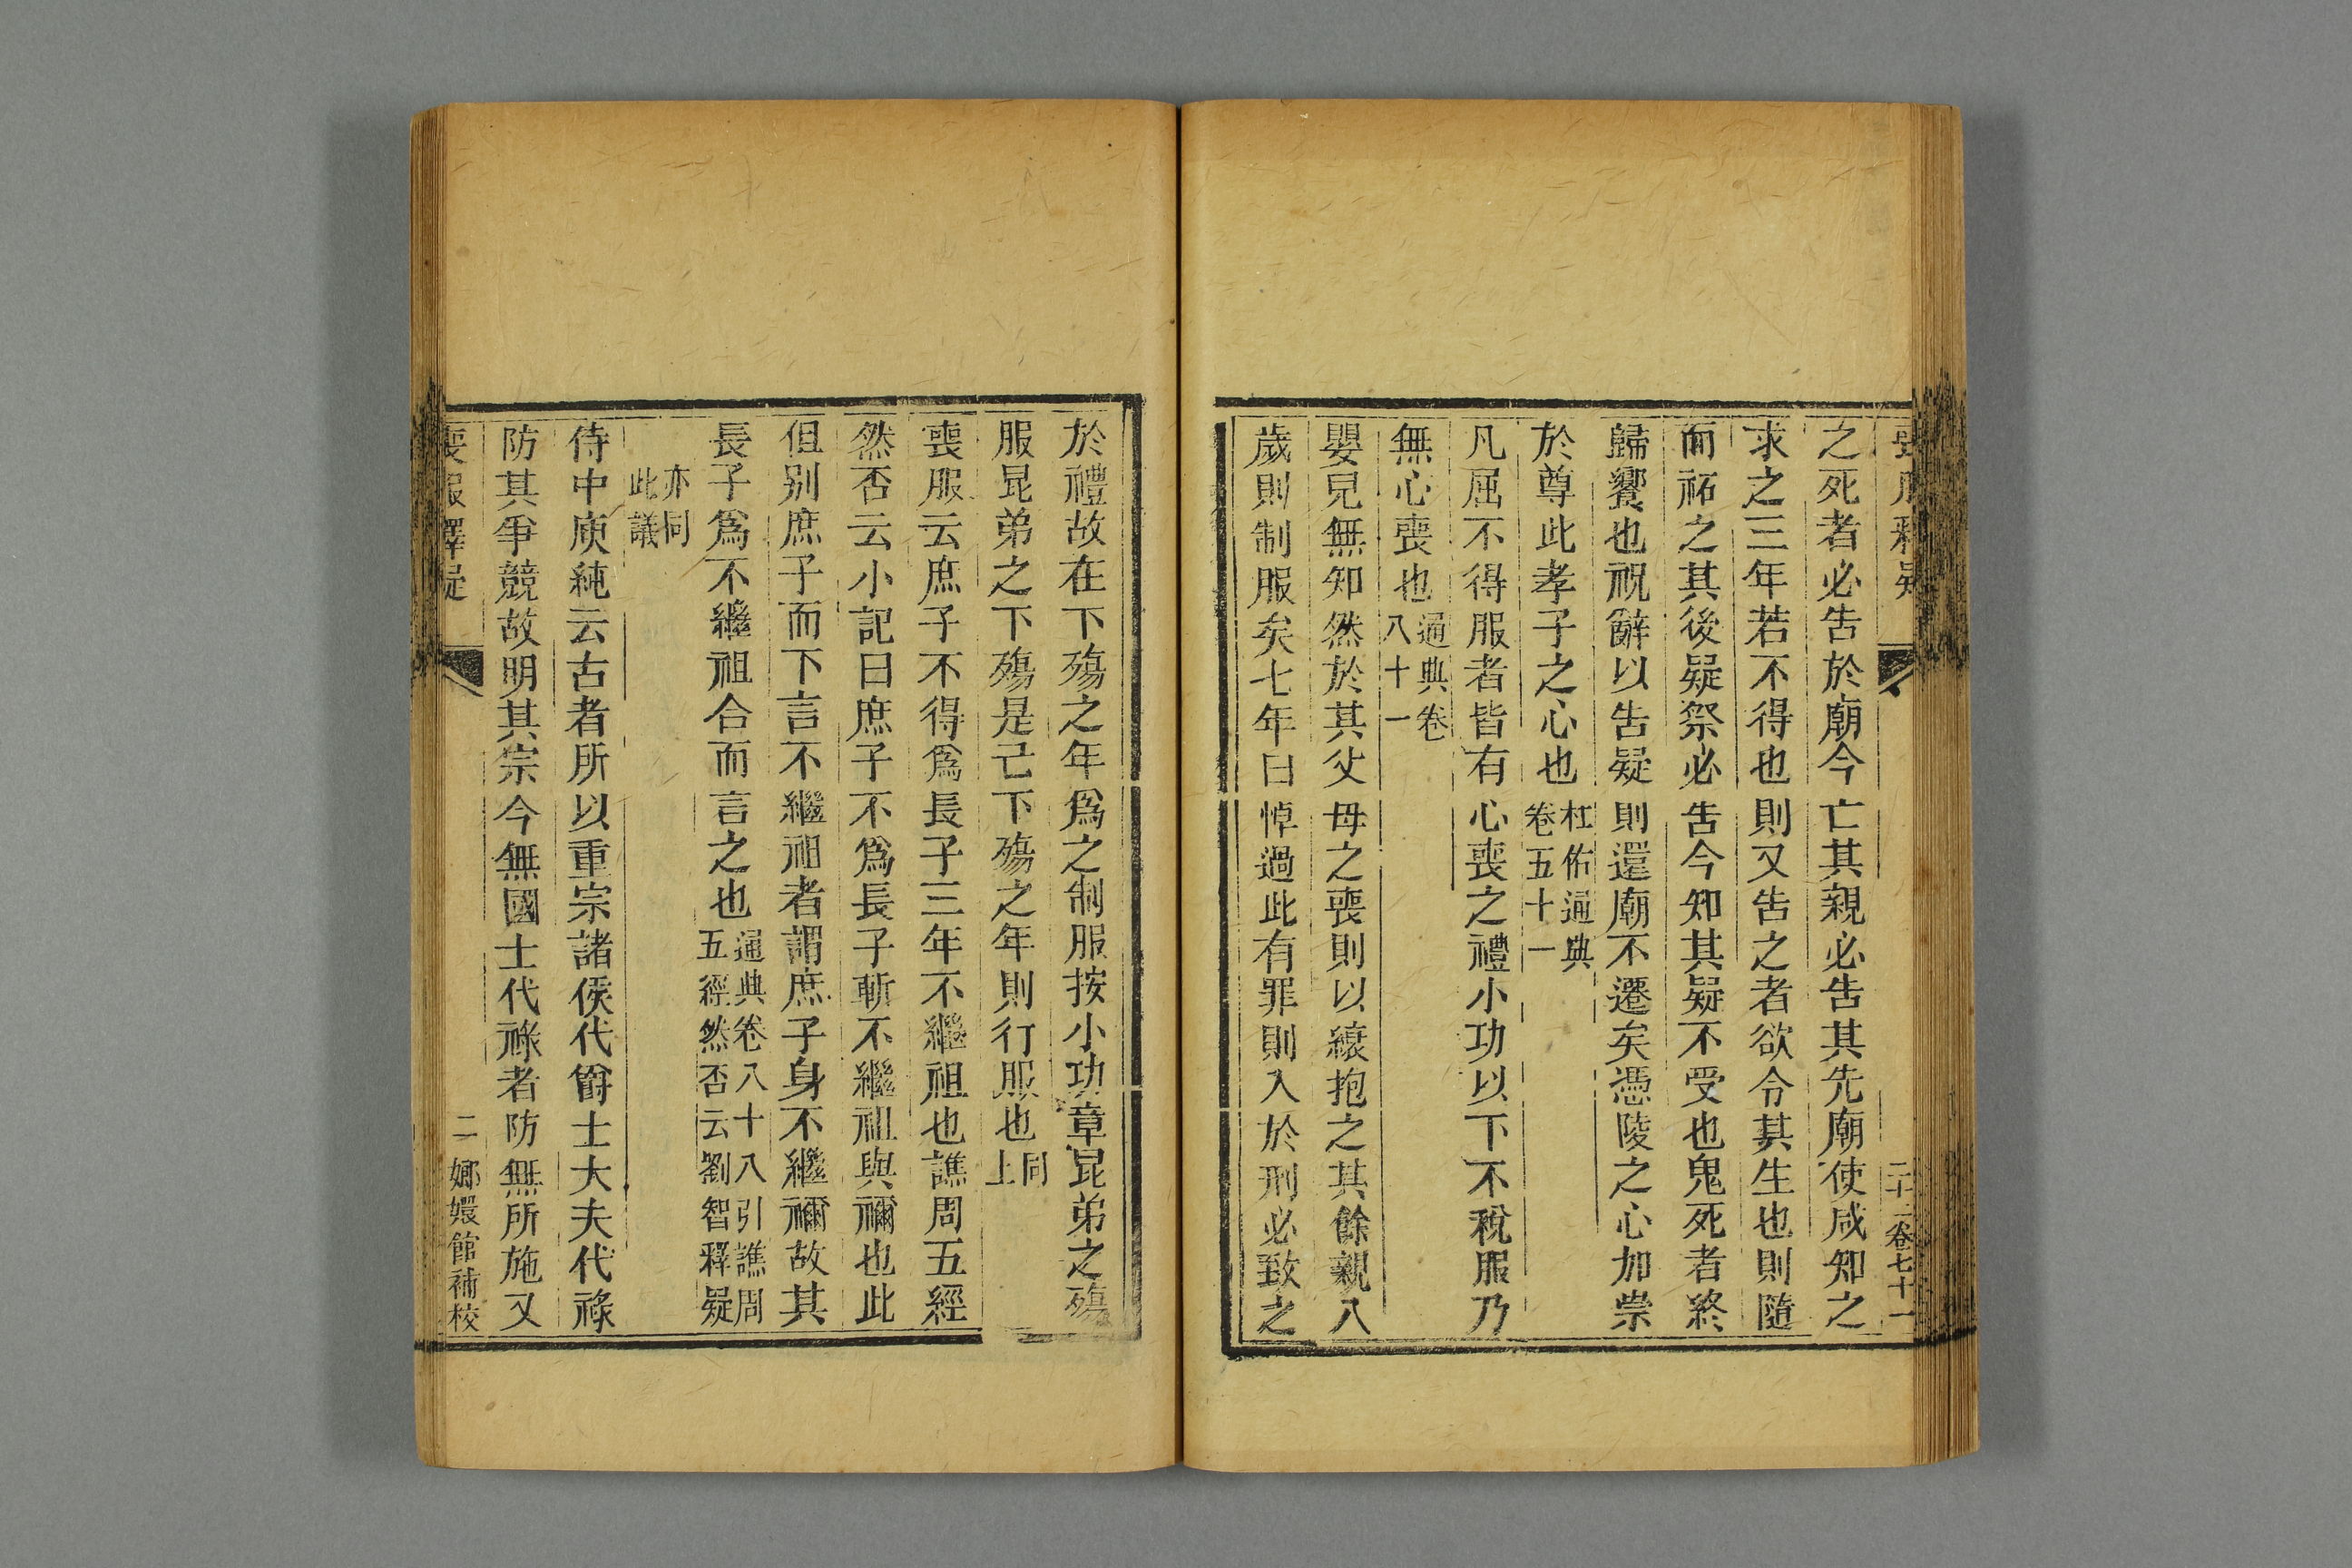 之死者必告於廟今亡其親必告其先廟使咸知之
求之三年若不得也則又告之者欲令其生也則隨
而祏之其後疑祭必告今知其疑不受也鬼死者終
歸饗也祝辭以告疑則還廟不遷矣憑陵之心加崇
於尊此孝子之心也杜佑通典卷五十一
凡屈不得服者皆有心喪之禮小功以下不稅服乃
無心喪也通典卷八十一
嬰兒無知然於其父母之喪則以縗抱之其餘親八
歲則制服矣七年曰悼過此有罪則入於刑必致之
於禮故在下殤之年爲之制服按小功章昆弟之殤
服昆弟之下殤是已下殤之年則行服也同上
喪服云庶子不得爲長子三年不繼祖也譙周五經
然否云小記曰庶子不爲長子斬不繼祖與禰也此
但别庶子而下言不繼祖者謂庶子身不繼禰故其
長子爲不繼祖合而言之也通典卷八十八引譙周五經然否云劉智釋疑
亦同此議
侍中庾純云古者所以重宗諸侯代爵士大夫代祿
防其爭競故明其宗今無國士代祿者防無所施又
喪服釋疑
二 嫏嬛館補校